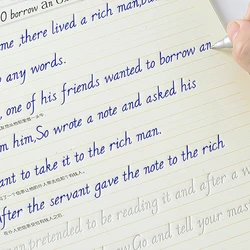 O borrow An Ox
me ,there lived a rich man,
any words.
one of his friends wanted to borrow an
m him,So wrote a note and asked his
ant to take it to the rich man.
fter the servant gave the note to the rich
an pretended to be reading it and after a w
now,Go and tell your mast